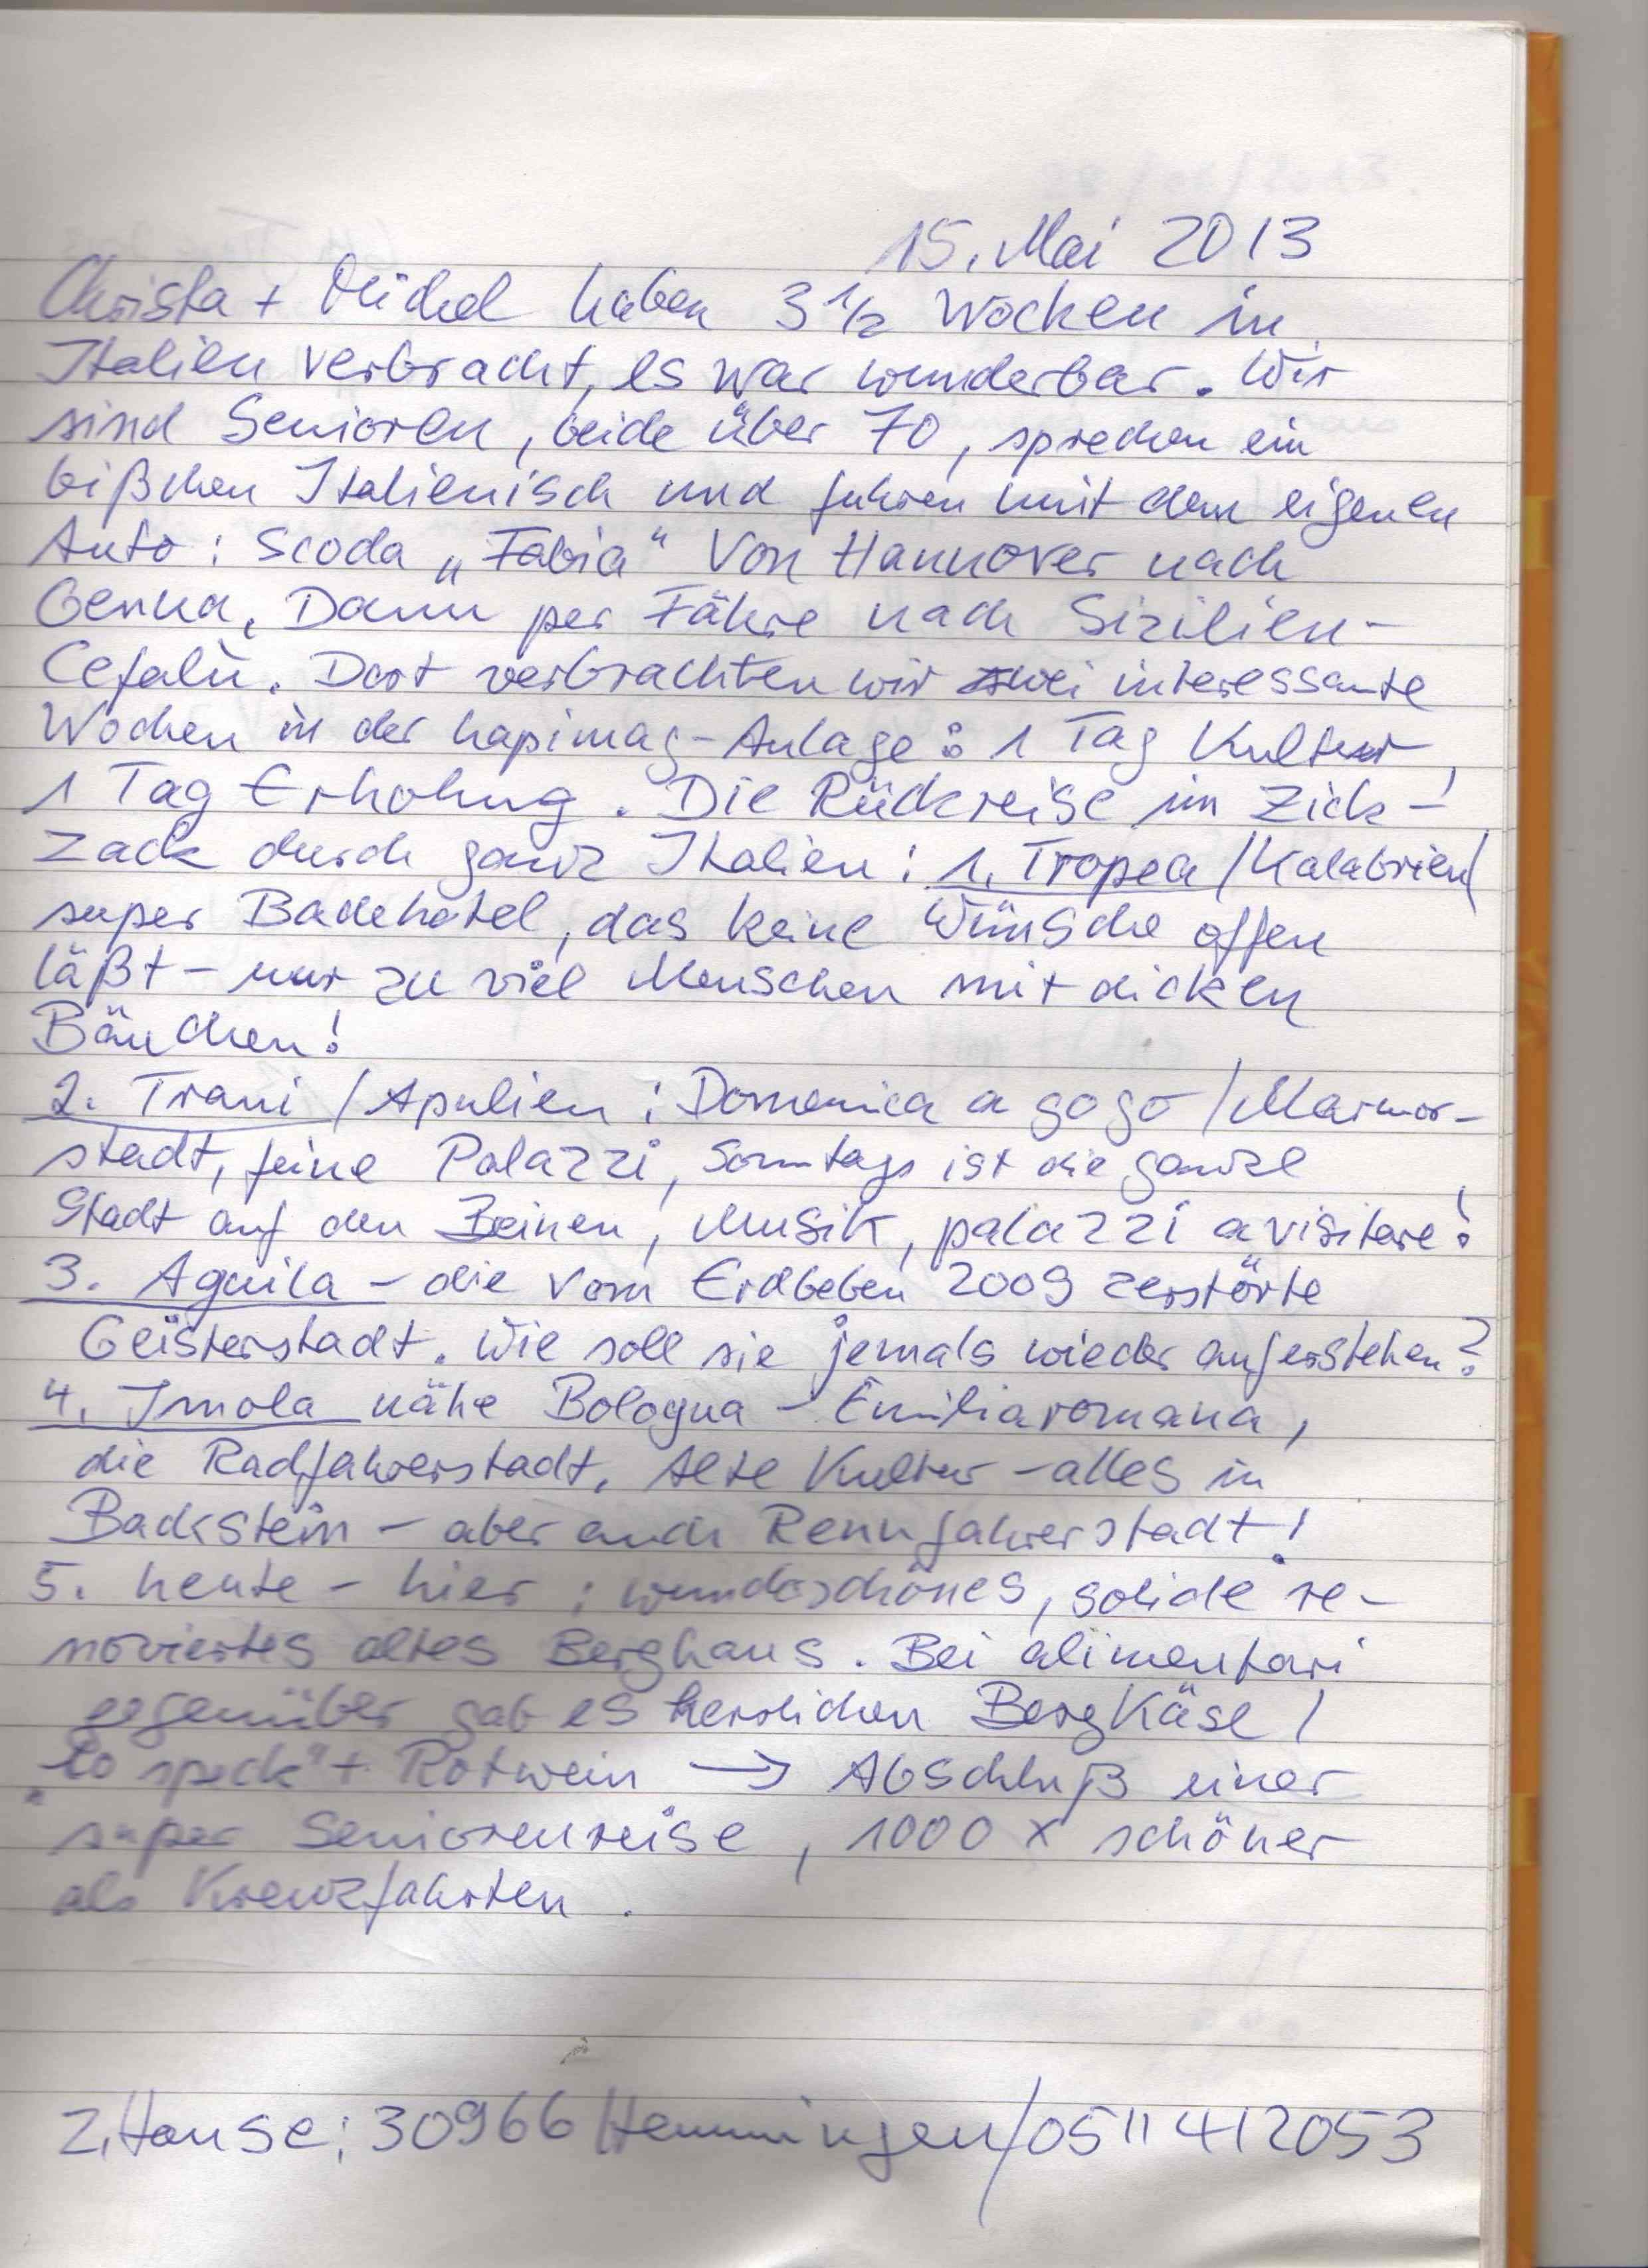 15. Mai 2013
Christa + Michel haben 3 1/2 Wochen in
Italien verbracht, es war wunderbar. Wir
sind Senioren, beide über 70, sprechen ein
bißchen Italienisch und fuhren mit dem eigenen
Auto: Scoda „Fabia“ von Hannover nach
Genua, Dann per Fähre nach Sizilien-
Cefalù. Dort verbrachten wir zwei interessante
Wochen in der hapimag-Anlage: 1 Tag Kultur,
1 Tag Erholung. Die Rückreise im Zick-
zack durch ganz Italien: 1. Tropea /Kalabrien/
super Badehotel, das keine Wünsche offen
läßt - nur zu viel Menschen mit dicken
Bäuchen!
2. Trani /Apulien: Domenica a gogo /Marmor-
stadt, feine Palazzi, Sonntags ist die ganze
Stadt auf den Beinen, Musik, palazzi a visitare!
3. Aquila - die vom Erdbeben 2009 zerstörte
Geisterstadt. Wie soll sie jemals wieder auferstehen?
4. Imola nähe Bologna - Emiliaromana,
die Radfahrerstadt. Alte Kultur - alles in
Backstein - aber auch Rennfahrerstadt!
5. heute - hier: wunderschönes, solide re-
noviertes altes Berghaus. Bei alimentari
gegenüber gab es herrlichen Bergkäse /
„lo speck“ + Rotwein → Abschluß einer
super Seniorenreise, 1000 x schöner
als Kreuzfahrten.
z. Hause: 30966 Hemmingen/0511 412053